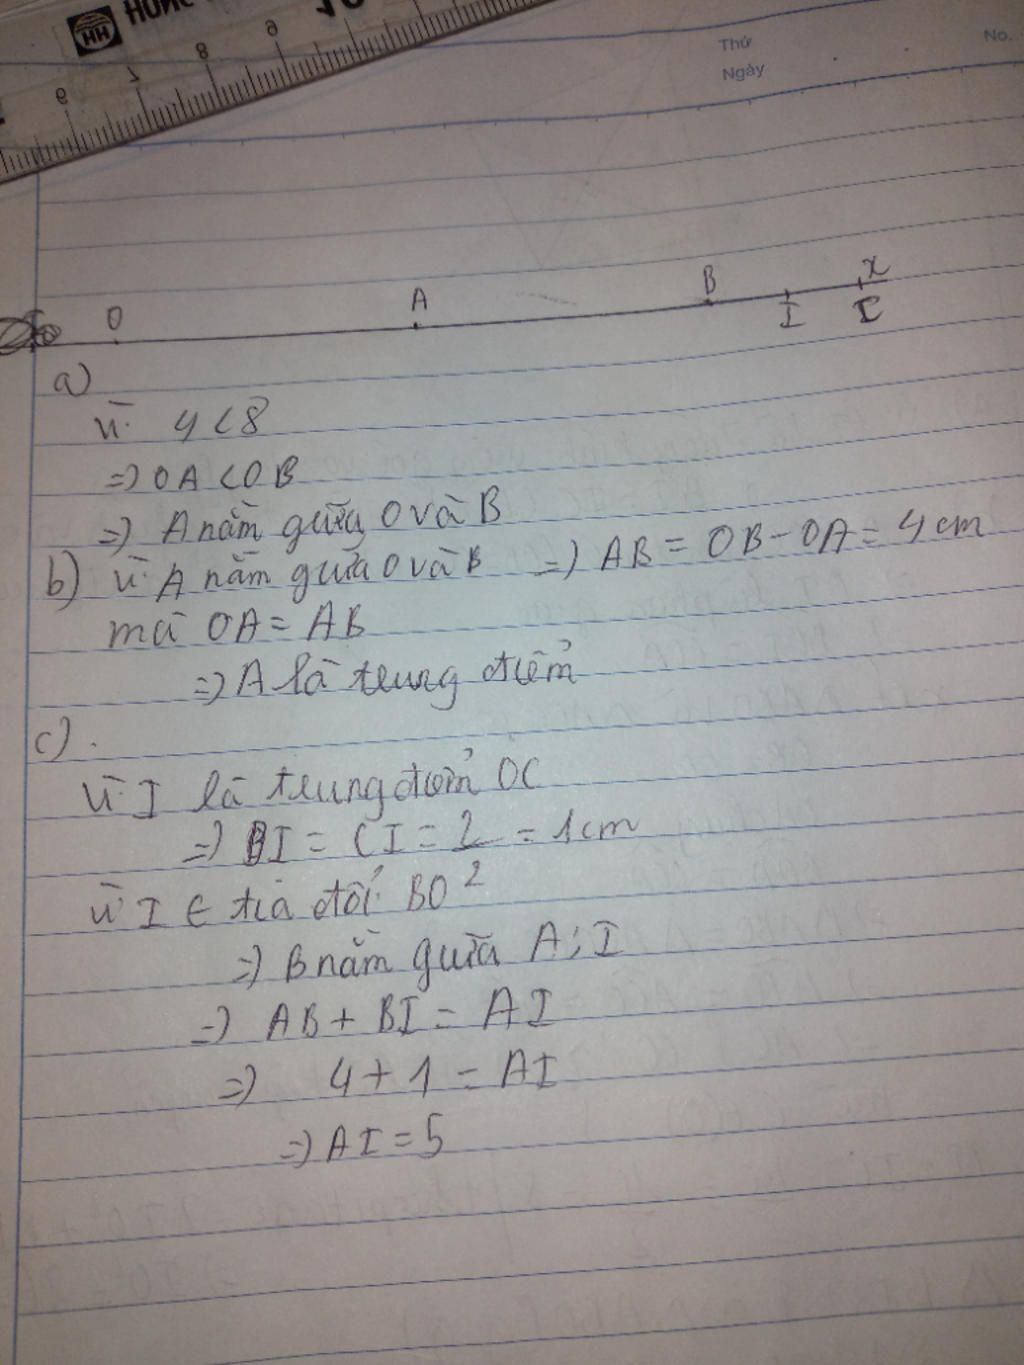 HH HÙNG
10
9
8
7
6
Thứ
Ngày
No.
O A B I C x
a)
Vì 4 < 8
=> OA < OB
=> A nằm giữa O và B
b) Vì A nằm giữa O và B => AB = OB - OA = 4 cm
mà OA = AB
=> A là trung điểm
c).
Vì I là trung điểm OC
=> BI = CI = 2/2 = 1cm
Vì I ∈ tia đối BO
=> B nằm giữa A; I
=> AB + BI = AI
=> 4 + 1 = AI
=> AI = 5